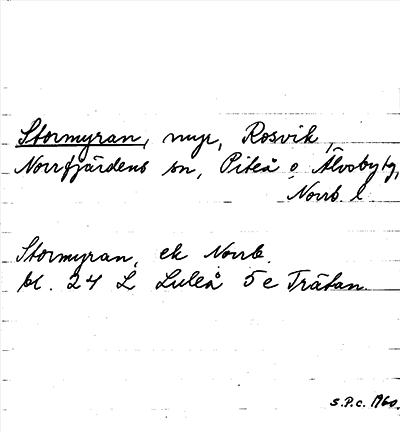 Stormyran, myr, Rosvik,
Norrfjärdens sn, Piteå o. Älvsby tg,
Norrb. l.
Stormyran, ek Norrb.
bl. 24 L Luleå 5 c Trätan.
S.P.C. 1960.